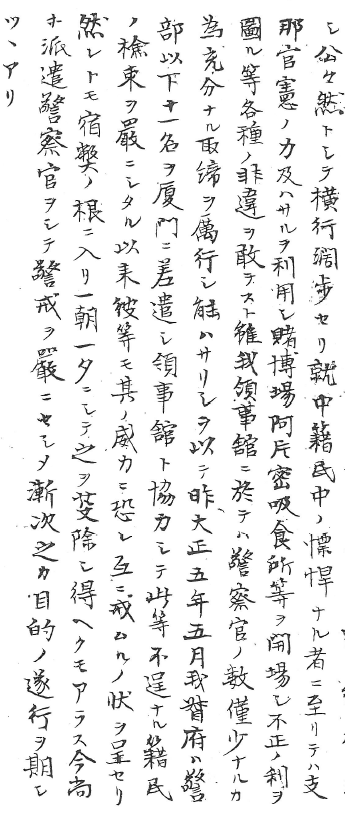 シ公々然トシテ横行濶歩セリ就中籍民中ノ慓悍ナル者ニ至リテハ支
那官憲ノ力及ハサルヲ利用シ賭博場阿片密吸食所等ヲ開場シ不正ノ利ヲ
圖ル等各種ノ非違ヲ敢テスト雖我領事館ニ於テハ警察官ノ数僅少ナルカ
為充分ナル取締ヲ厲行シ能ハサリシヲ以テ昨大正五年五月我督府ハ警
部以下十一名ヲ厦門ニ差遣シ領事館ト協力シテ此等不逞ナル籍民
ノ検束ヲ嚴ニシタル以来彼等モ其ノ威力ニ恐レ互ニ戒ムルノ状ヲ呈セリ
然レトモ宿弊ノ根ニ入リ一朝一夕ニシテ之ヲ芟除シ得ヘクモアラス今尚
ホ派遣警察官ヲシテ警戒ヲ嚴ニセシメ漸次之カ目的ノ遂行ヲ期シ
ツヽアリ